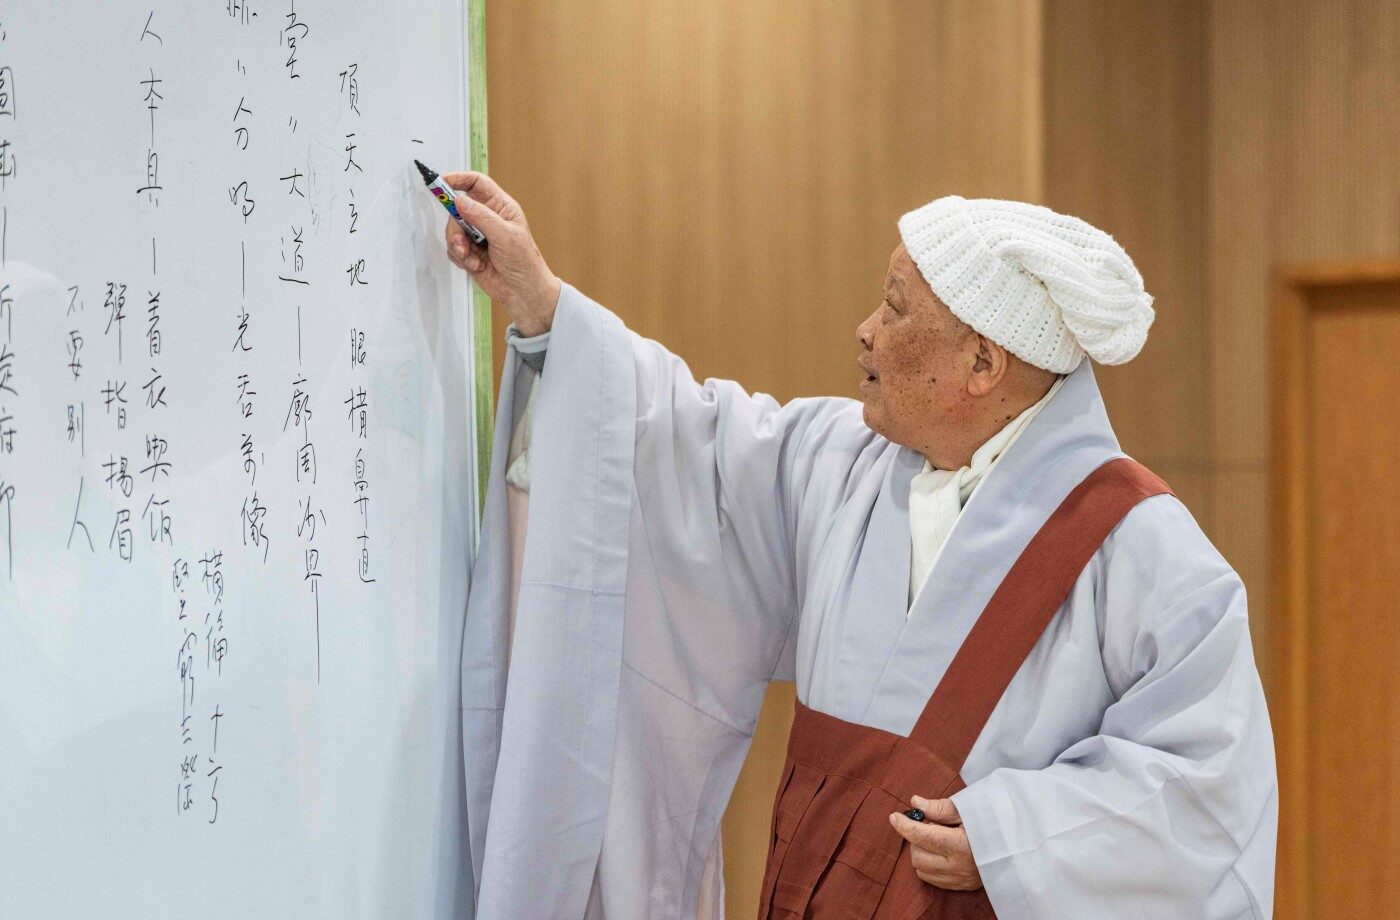 頂天立地 眼橫鼻直
堂〃大道—廓周沙界
〃分明—光呑萬像
橫徧十方
竪窮三際
人本具—着衣喫飯
彈指揚眉
不要別人
圓成—折旋俯仰